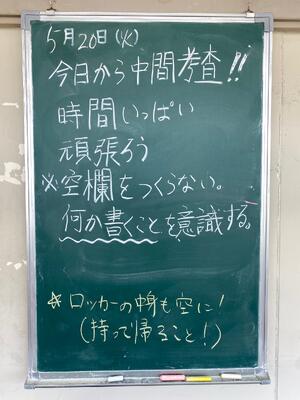 5月20日(火)
今日から中間考査!!
時間いっぱい
頑張ろう
※空欄をつくらない。
何か書くことを意識する。
☆ロッカーの中身も空に!
(持って帰ること!)